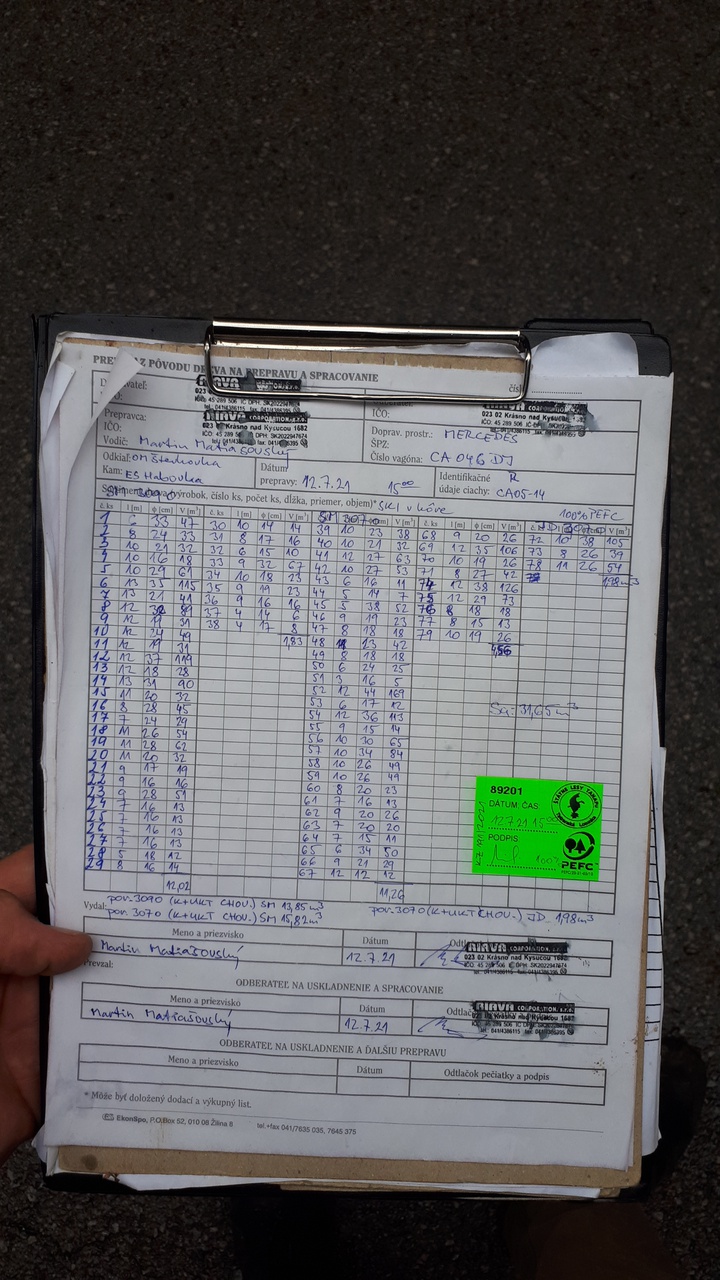 PÔVODU DREVA NA PREPRAVU A SPRACOVANIE
čís
023 02 Krásno nad Kysucou 1682
Prepravca:
IČO:
Doprav. prostr.: MERCEDES
ŠPZ:
Vodič: Martin Matiašovský
Číslo vagóna: CA 046 DJ
Odkiaľ: OM Štedrovka
Kam: ES Habovka
Dátum prepravy: 12.7.21 15⁰⁰
Identifikačné údaje ciachy: R CA05-14
výrobok, číslo ks, počet ks, dĺžka, priemer, objem)* SKI v kôre
100% PEFC
č. ks l [m] ϕ [cm] V [m³]
1 6 33 47 30 10 14 14 39 10 23 38 68 9 20 26 72 10 38 105
2 8 24 33 31 8 17 16 40 10 21 32 69 12 35 106 73 8 26 39
3 10 21 32 32 6 15 10 41 12 27 63 70 10 19 26 78 11 26 54
4 10 16 18 33 9 32 67 42 10 27 53 71 8 27 42
5 10 29 61 34 10 18 23 43 6 16 11 74 12 38 126 1,98m³
6 13 35 115 35 9 19 23 44 5 14 7 75 12 29 73
7 13 21 41 36 8 16 16 45 5 38 52 76 8 18 18
8 12 32 89 37 4 14 6 46 9 19 23 77 8 15 13
9 12 19 31 38 4 17 8 47 8 18 18 79 10 19 26
10 12 24 49 1,83 48 11 23 42 4,56
11 12 19 31 49 8 18 18
12 12 37 119 50 6 24 25
13 12 18 28 51 3 16 5
14 13 31 90 52 12 44 169
15 11 20 32 53 6 17 12
16 8 28 45 54 12 36 113
17 7 24 29 55 9 15 14
18 11 26 54 56 10 30 65
19 11 28 62 57 10 34 84
20 11 20 32 58 10 26 49
21 9 17 19 59 10 26 49
22 9 16 16 60 8 20 23
23 9 28 51 61 7 16 13
24 7 16 13 62 9 20 26
25 7 16 13 63 7 20 20
26 7 16 13 64 7 15 11
27 7 16 13 65 6 34 50
28 5 18 12 66 9 21 29
29 8 16 14 67 12 12 12
12,02 11,26
Sa: 31,65m³
89201
DÁTUM, ČAS
12 7 21 15⁰⁰
PODPIS
100%
ŠTÁTNE LESY TANAPU
PEFC
Vydal: por. 3090 (K+UKT CHOV.) SM 13,85m³
por. 3070 (K+UKT CHOV.) SM 15,82m³ por. 3070 (K+UKT CHOV.) JD 1,98m³
Meno a priezvisko Dátum
Martin Matiašovský 12.7.21
023 02 Krásno nad Kysucou
Prevzal:
ODBERATEĽ NA USKLADNENIE A SPRACOVANIE
Meno a priezvisko Dátum
Martin Matiašovský 12.7.21
ODBERATEĽ NA USKLADNENIE A ĎALŠIU PREPRAVU
Meno a priezvisko Dátum Odtlačok pečiatky a podpis
* Môže byť doložený dodací a výkupný list.
EkonSpo, P.O.Box 52, 010 08 Žilina 8 tel.+fax 041/7635 035, 7645 375